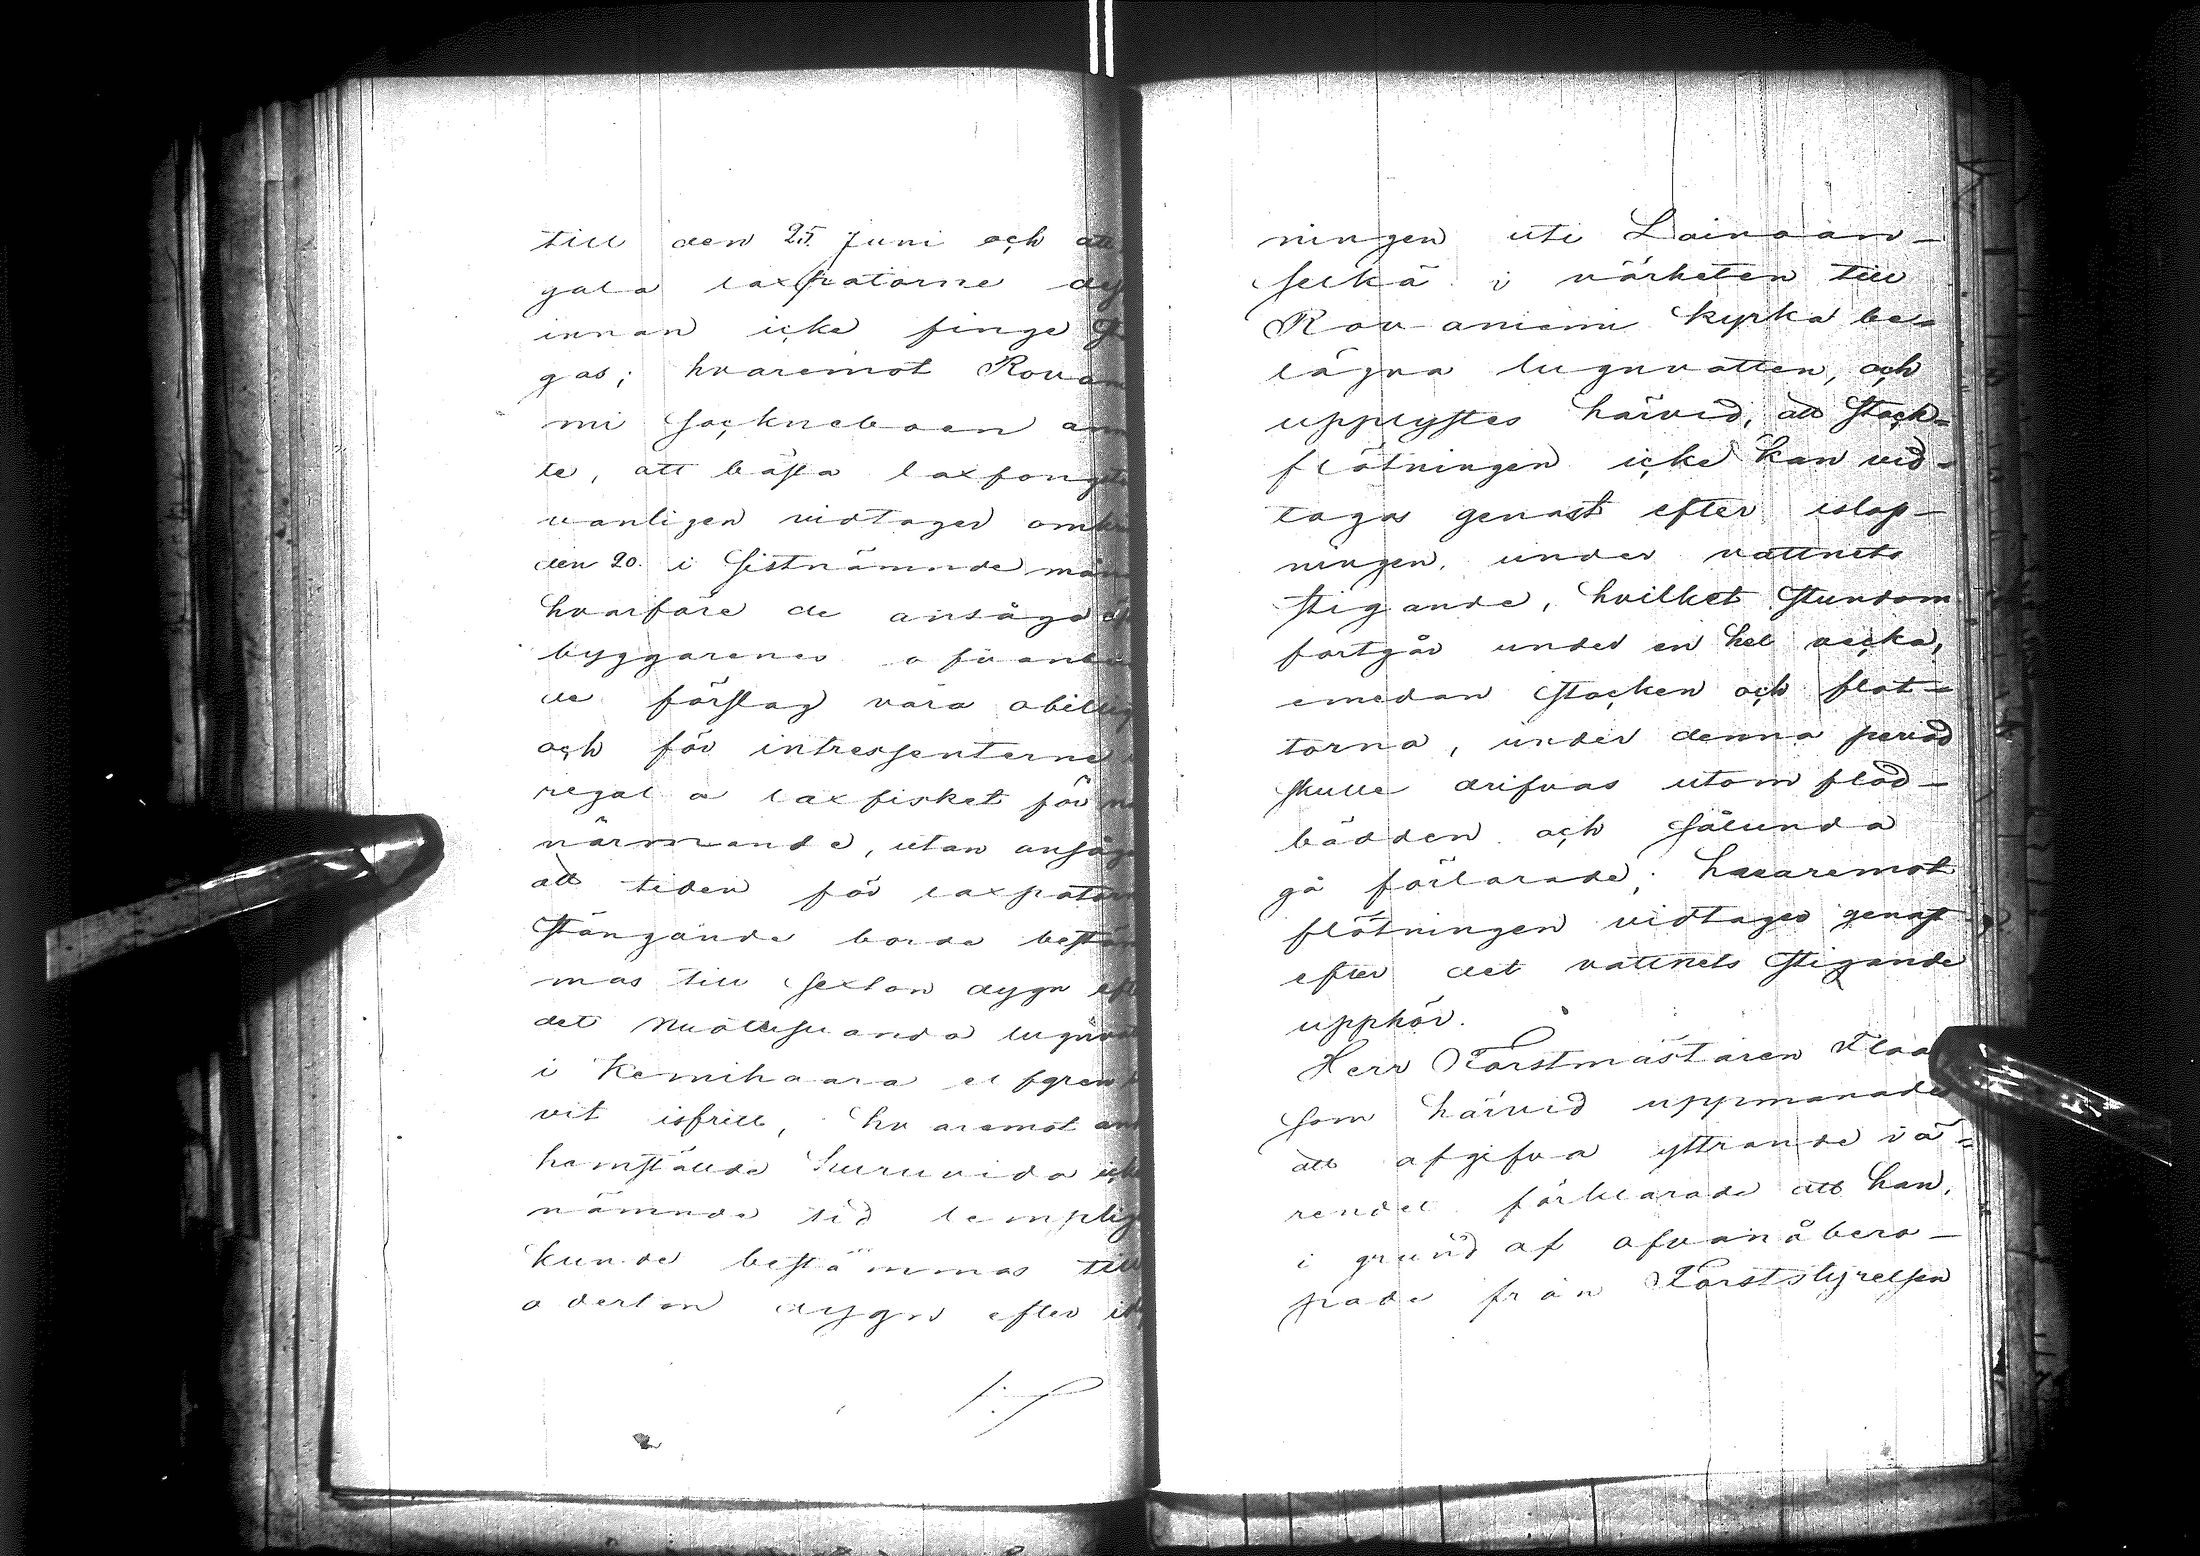 till den 25. Juni och att
gala laxpatorne dy
innan icke finge g
gas; hvaremot Rovan
mi sockneboen an
te, att bästa laxfongst
vanligen vidtager omk
den 20. i sistnämnde mån
hvarföre de ansågo
byggarenes ofvan
de förslag vara obillig
och för intressenterne
regala laxfisket för n
närmande, utan ansåg
att tiden för laxpator
stängande borde bestäm
mas till sexton dygn eft
det lugnv
i Kemihaara elfgren
vit isfritt, hvaremot an
hemställde huruvida ick
nämnde tid lempliga
kunde bestämmas till
aderton dygn efter is
ningen uti Lainaan-
selkä i närheten till
Rovaniemi kyrka be-
lägna lugnvatten, och
upplystes härvid, att stock-
flötningen icke kan vid-
tagas genast efter islop-
ningen, under vattnets
stigande, hvilket stundom
fortgår under en hel vecka,
emedan stocken och flot-
torna, under denna period
skulle drifvas utom flod-
bädden och sålunda
gå förlorade; hvaremot
flötningen vidtages genast
efter det vattnets stigande
upphör.
Herr Forstmästaren
som härvid uppmanades
att afgifva yttrande i ä-
rendet förklarade att han,
i grund af ofvanåbero-
pade från Forststyrelsen